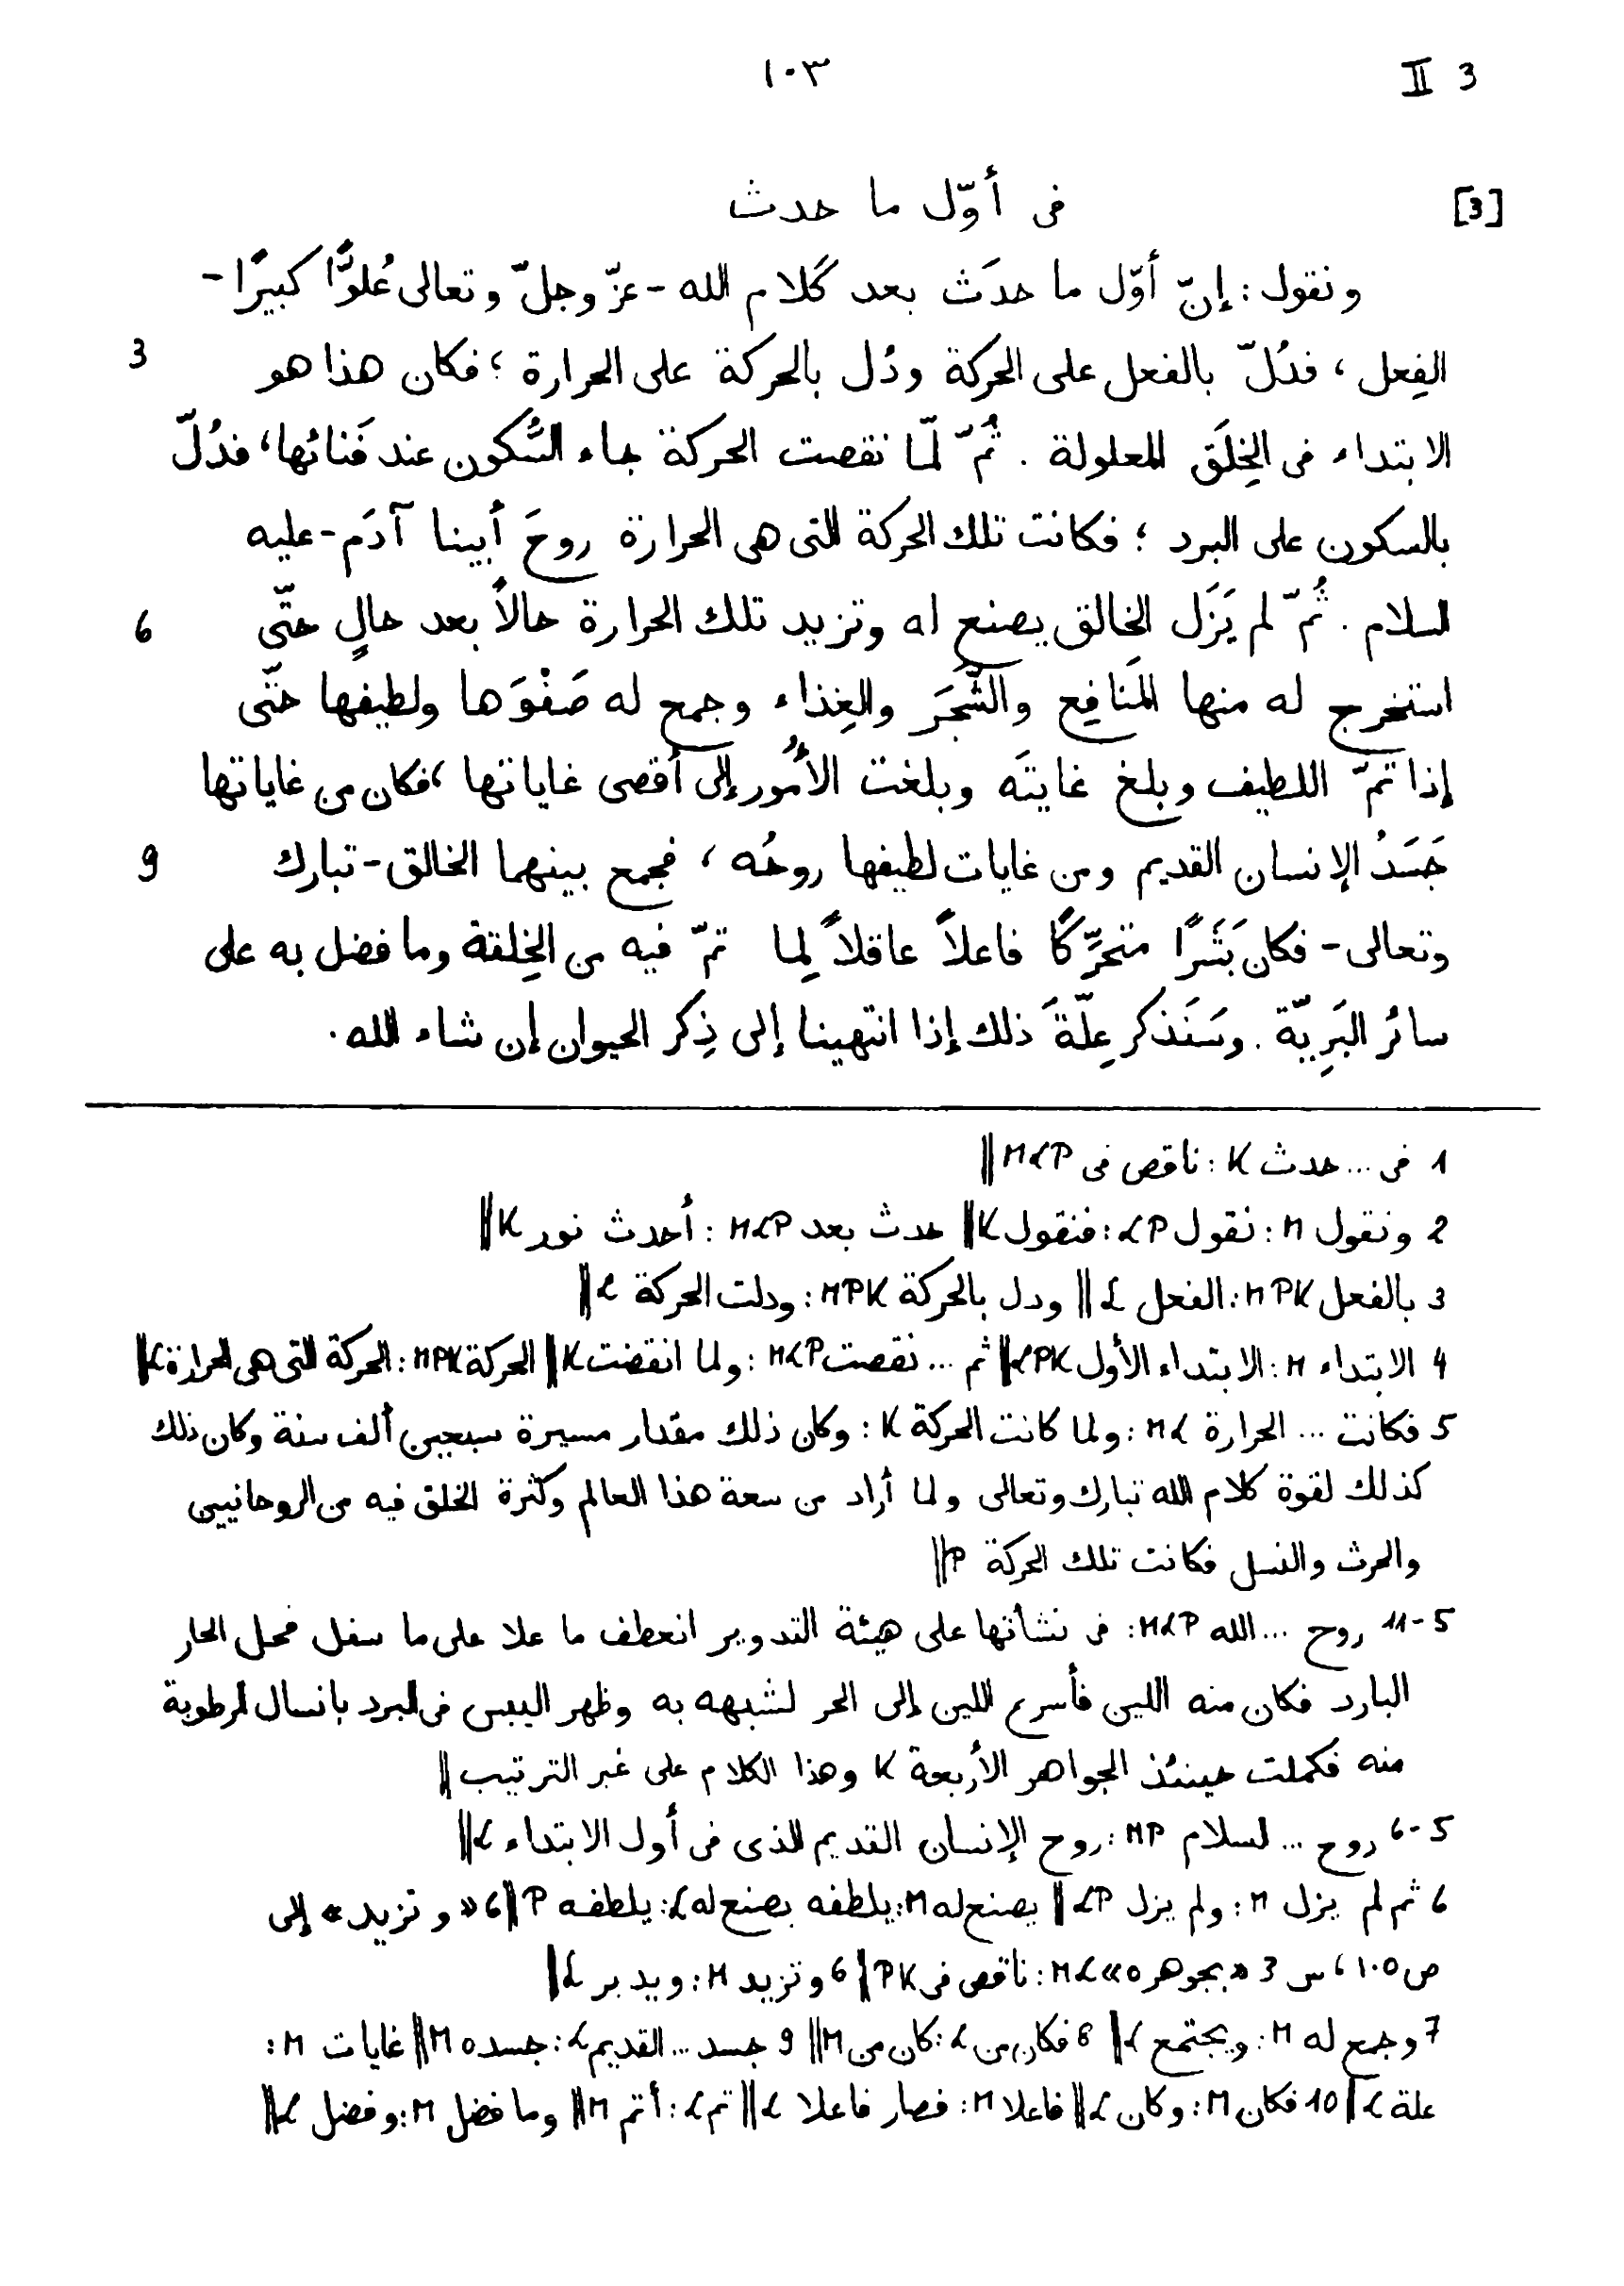 ١٠٣ II 3
[3] فى أوّل ما حدث
ونقول: إنّ أوّل ما حدَث بعد كَلام الله - عزّ وجلّ وتعالى عُلوًّا كبيرًا -
الفِعل، فدُلّ بالفعل على الحركة ودُل بالحركة على الحرارة؛ فكان هذا هو 3
الابتداء فى الخِلَق المعلولة. ثُمّ لمّا نقصت الحركة جاء السُّكون عند فَنائها، فدُلّ
بالسكون على البرد؛ فكانت تلك الحركة التى هى الحرارة روحَ أبينا آدَم - عليه
السلام. ثُمّ لم يَزَل الخالق يصنع له وتزيد تلك الحرارة حالاً بعد حالٍ حتّى 6
استخرج له منها المَنافِع والشَّجَر والغِذاء وجمع له صَفْوَها ولطيفها حتّى
إذا تمّ اللطيف وبلغ غايتَه وبلغت الأُمور إلى أقصى غاياتها، فكان من غاياتها
جَسَدُ الإنسان القديم ومن غايات لطيفها روحُه، فجمع بينهما الخالق - تبارك 9
وتعالى - فكان بَشَرًا متحرِّكًا فاعلاً عاقلاً لِما تمّ فيه من الخِلقة وما فضل به على
سائر البَرِيّة. وسَنَذكر عِلّةَ ذلك إذا انتهينا إلى ذِكر الحيوان إن شاء الله.
1 فى ... حدث K: ناقص فى MLP ||
2 ونقول M: نقول LP: فنقول K || حدث بعد MLP: أحدث نور K ||
3 بالفعل MPK: الفعل L || ودل بالحركة MPK: ودلت الحركة L ||
4 الابتداء M: الابتداء الأول LPK || ثم ... نقصت MLP: ولما انقضت K || الحركة MPK: الحركة التى هى الحرارة L ||
5 فكانت ... الحرارة ML: ولما كانت الحركة K: وكان ذلك مقدار مسيرة سبعين ألف سنة وكان ذلك
كذلك لقوة كلام الله تبارك وتعالى ولما أراد من سعة هذا العالم وكثرة الخلق فيه من الروحانيين
والحرث والنسل فكانت تلك الحركة P ||
5-11 روح ... الله MLP: فى نشأتها على هيئة التدوير انعطف ما علا على ما سفل فحل الحار
البارد فكان منه اللين فأسرع اللين إلى الحر لشبهه به وظهر اليبس فى البرد بانسال الرطوبة
منه فكملت حينئذ الجواهر الأربعة K وهذا الكلام على غير الترتيب ||
5-6 روح ... السلام MP: روح الإنسان القديم الذى فى أول الابتداء L ||
6 ثم لم يزل M: ولم يزل LP || يصنع له M: يلطفه يصنع له L: يلطفه P || 6 «وتزيد» إلى
ص ١٠٥، س 3 «بجوهره» ML: ناقص فى PK || 6 وتزيد M: ويدبر L ||
7 وجمع له M: ويجتمع L || 8 فكان من L: كان من M || 9 جسد ... القديم L: جسده M || غايات M:
علة L || 10 فكان M: وكان L || فاعلا M: فصار فاعلا L || تم L: أتم M || وما فضل M: وفضل L ||